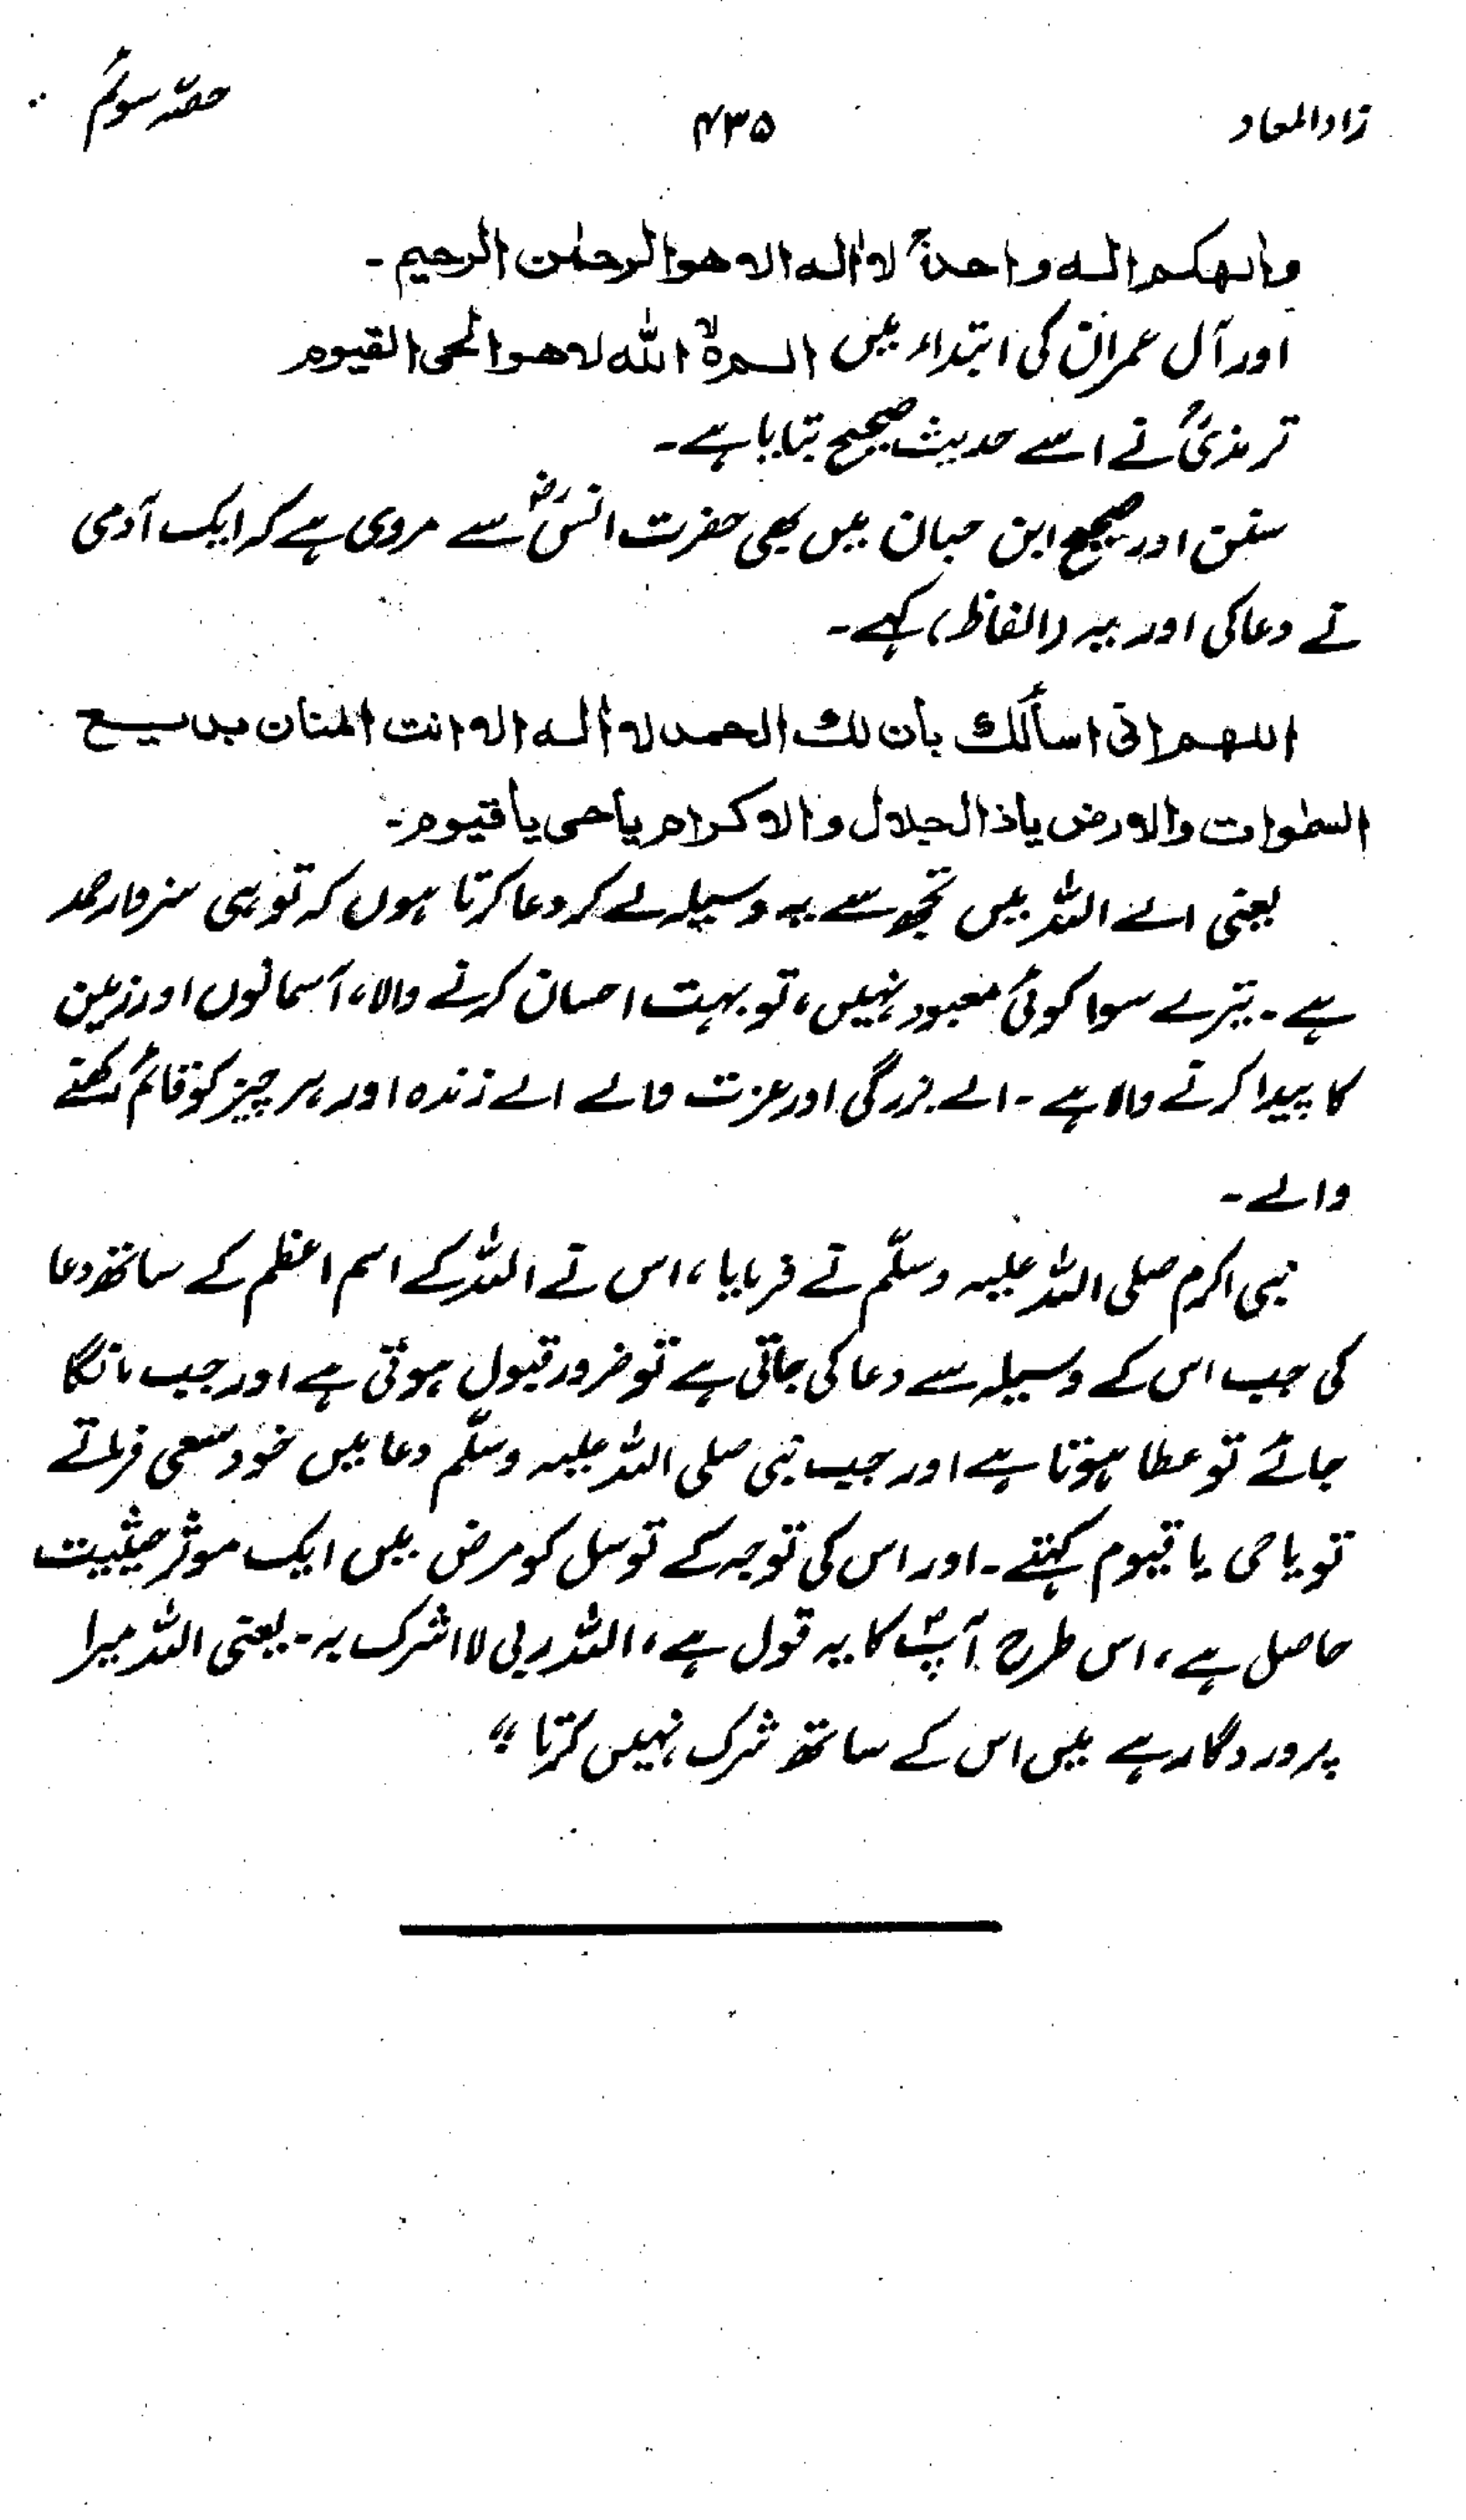 زاد المعاد ۴۳۵ حصّہ سوئم
والھکم الہ واحدٌ لا الٰہ الا ھو الرحمٰن الرحیم۔
اور آل عمران کی ابتداء میں المۤ ہ اللہ لا ھو الحی القیوم
ترمذیؒ نے اسے حدیث صحیح بتایا ہے۔
سنن اور صحیح ابن حبان میں بھی حضرت انسؓ سے مروی ہے کہ ایک آدمی
نے دعا کی اور یہ (الفاظ) کہے۔
اللھم انی اسألک بان لک الحمد لا الہ الا انت المنان بدیع
السمٰوات والارض یا ذا الجلال والاکرام یا حی یا قیوم۔
یعنی اے اللہ میں تجھ سے یہ وسیلہ لے کر دعا کرتا ہوں کہ تو ہی سزاوار حمد
ہے۔ تیرے سوا کوئی معبود نہیں، تو بہت احسان کرنے والا، آسمانوں اور زمین
کا پیدا کرنے والا ہے۔ اے بزرگی اور عزت والے اے زندہ اور ہر چیز کو قائم رکھنے
والے۔
نبی اکرم صلی اللہ علیہ وسلّم نے فرمایا، اس نے اللہ کے اسم اعظم کے ساتھ دعا
کی جب اس کے وسیلہ سے دعا کی جاتی ہے تو ضرور قبول ہوتی ہے اور جب مانگا
جائے تو عطا ہوتا ہے اور جب نبی صلی اللہ علیہ وسلّم دعا میں خود سعی فرماتے
تو یا حی یا قیوم کہتے۔ اور اس کی توجہ کے توسل کو مرض میں ایک موثر حیثیت
حاصل ہے، اس طرح آپؐ کا یہ قول ہے، اللہ ربی لا اشرک بہ۔ یعنی اللہ میرا
پروردگار ہے میں اس کے ساتھ شرک نہیں کرتا"